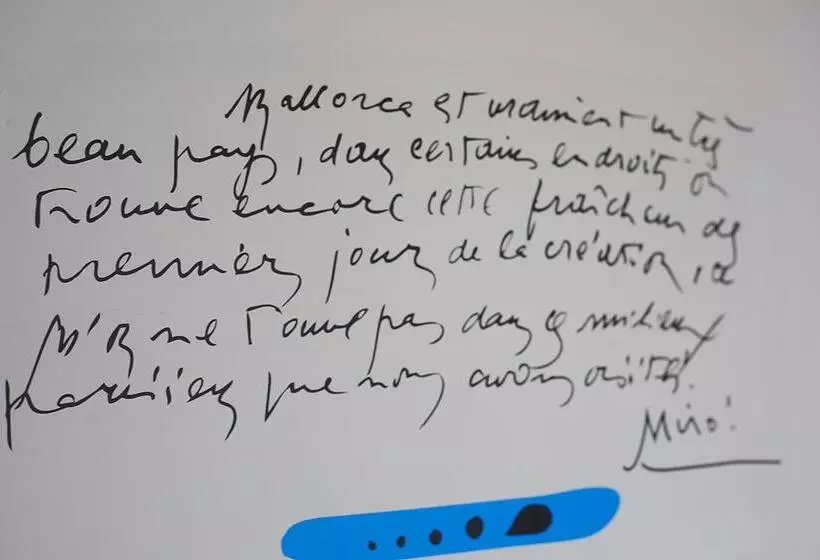 Mallorca est vraiment un très
beau pays, dans certains endroits on
trouve encore cette fraîcheur des
premiers jours de la création, ce
ne trouve pas dans ces milieux
parisiens que nous avons visités.
Miró.